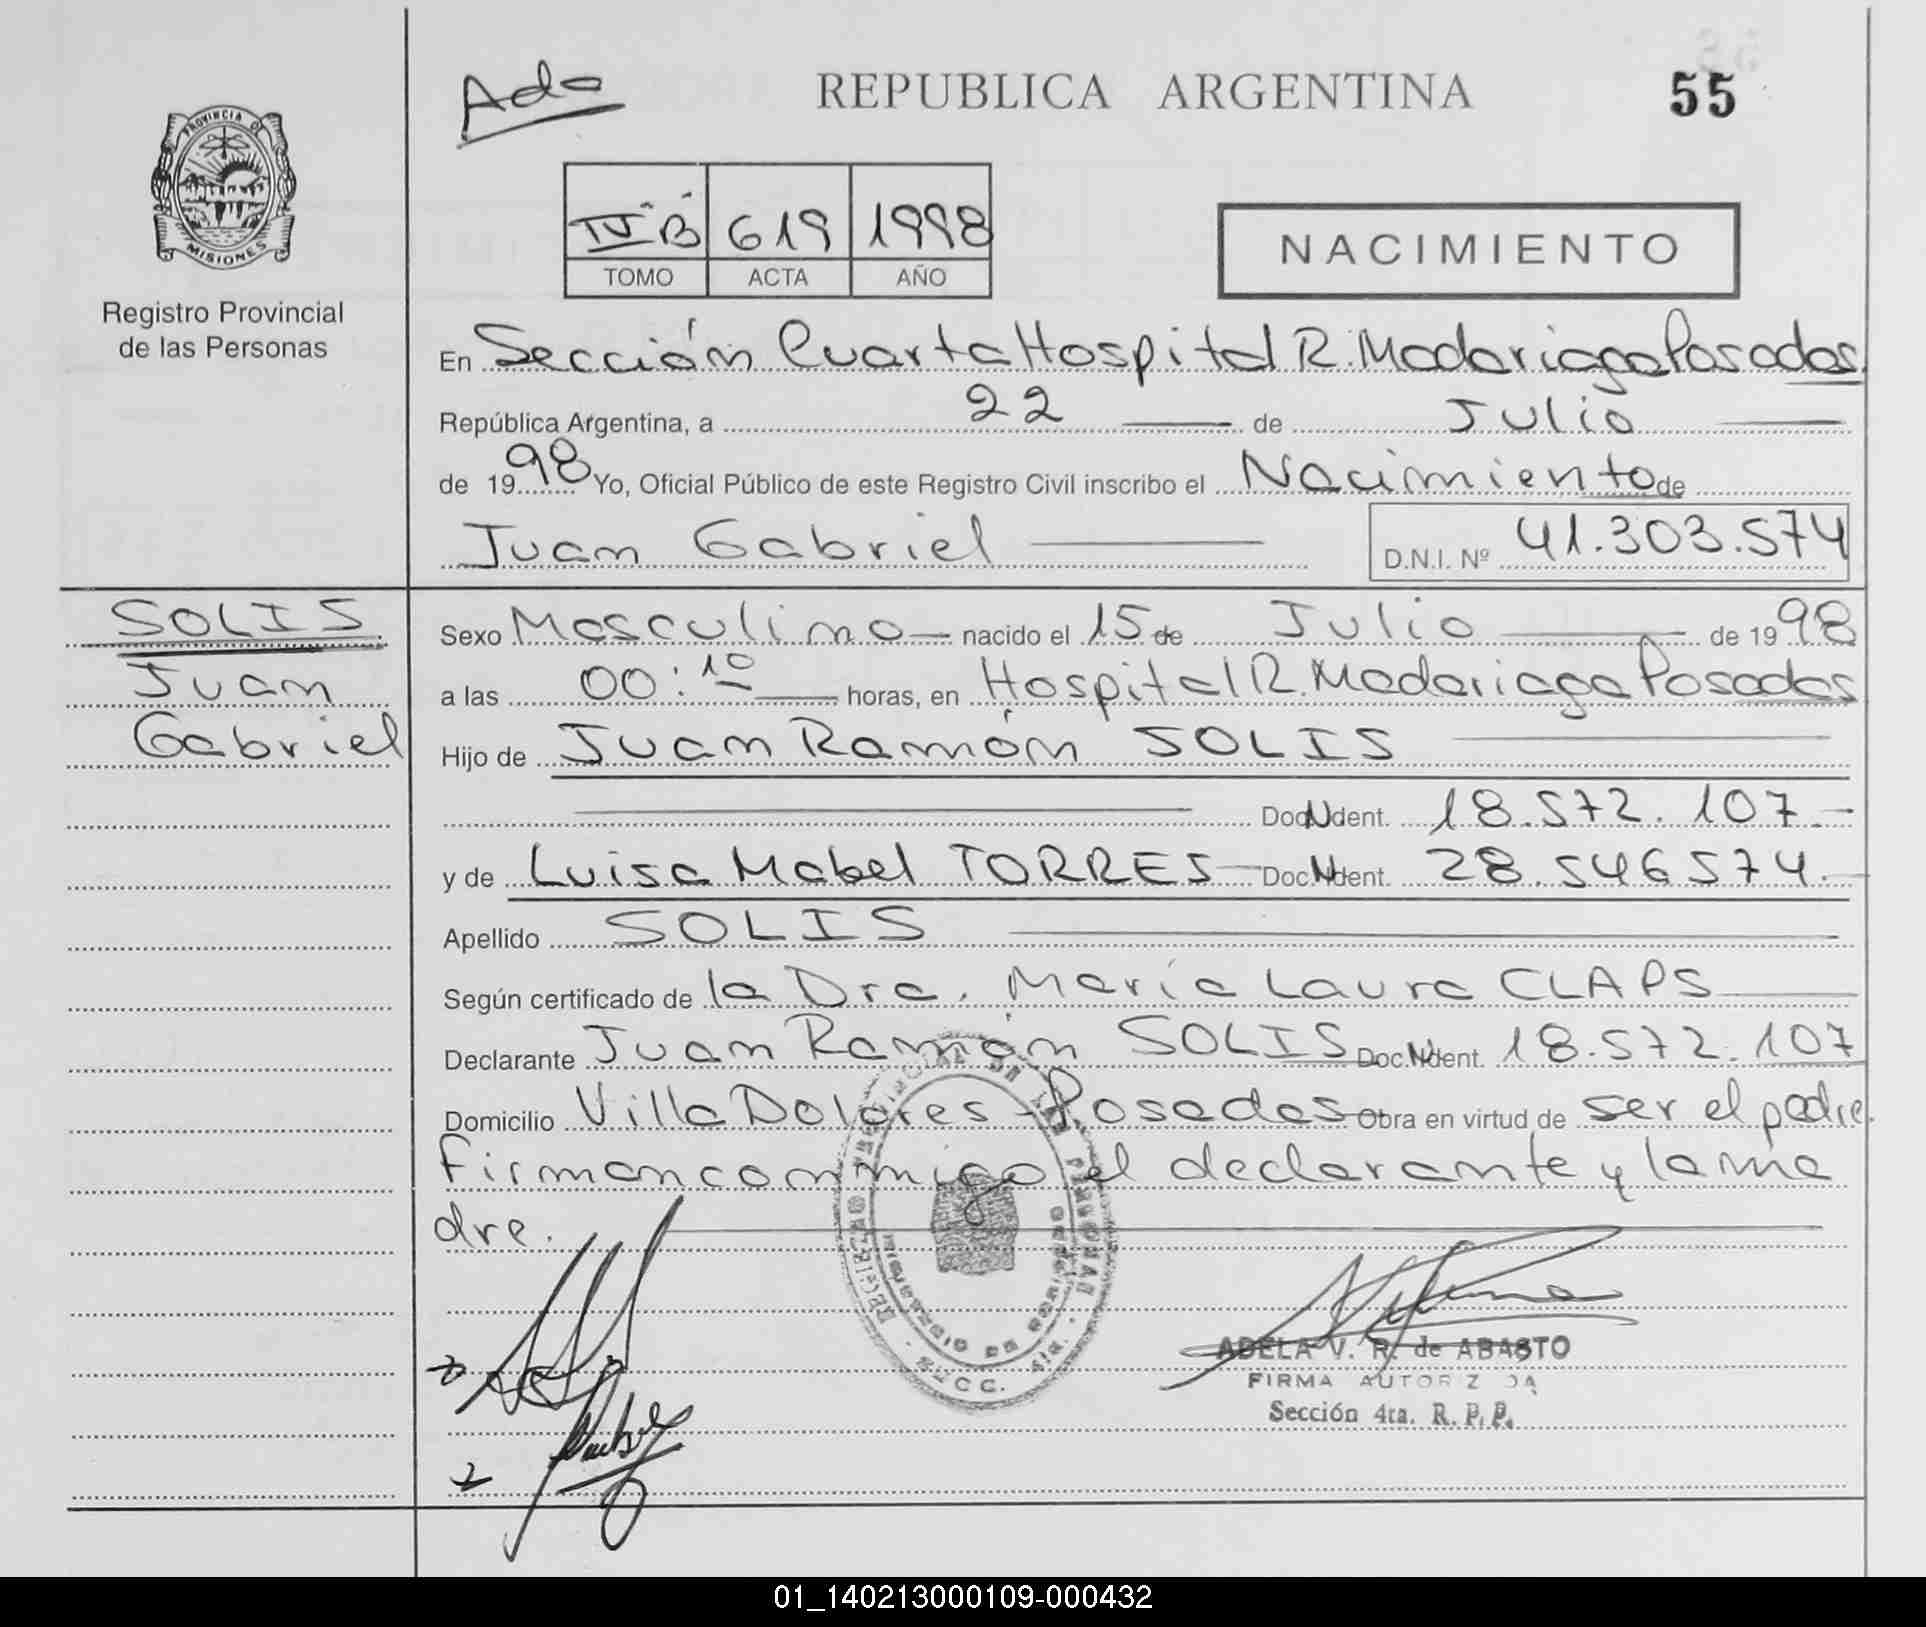 Ada
REPUBLICA ARGENTINA
55
PROVINCIA DE
MISIONES
Registro Provincial
de las Personas
IV"B" 619 1998
TOMO ACTA AÑO
NACIMIENTO
En Sección Cuarta Hospital R. Madariaga Posadas
República Argentina, a 22 de Julio
de 1998 Yo, Oficial Público de este Registro Civil inscribo el Nacimiento de
Juan Gabriel
D.N.I. Nº 41.303.574
SOLIS
Juan
Gabriel
Sexo Masculino nacido el 15 de Julio de 1998
a las 00:10 horas, en Hospital R. Madariaga Posadas
Hijo de Juan Ramón SOLIS
Doc. Ident. 18.572.107.-
y de Luisa Mabel TORRES Doc. Ident. 28.546574.-
Apellido SOLIS
Según certificado de la Dra. María Laura CLAPS
Declarante Juan Ramón SOLIS Doc. Ident. 18.572.107
Domicilio Villa Dolores - Posadas Obra en virtud de ser el padre.
Firman conmigo el declarante y la ma
dre.
REGISTRO PROVINCIAL DE LAS PERSONAS
SECC.
ADELA V. R. de ABASTO
FIRMA AUTORIZADA
Sección 4ta. R. P. P.
01_140213000109-000432